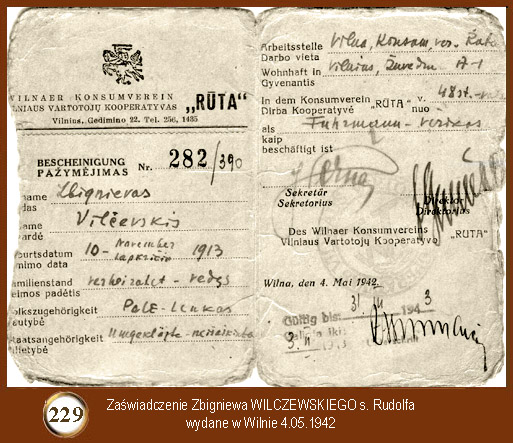 WILNAER KONSUMVEREIN
VILNIAUS VARTOTOJŲ KOOPERATYVAS „RŪTA"
Vilnius, Gedimino 22. Tel. 256, 1435
BESCHEINIGUNG
PAŽYMĖJIMAS Nr. 282/390
name Zbignievas
das
ame Vilčevskis
vardė
burtsdatum 10-November 1913
imimo data lapkričio
amilienstand verheiratet - vedęs
eimos padėtis
olkszugehörigkeit Pole-Lenkas
autybė
taatsangehörigkeit Ungeklärte-neišaiškinta
ilietybė
Arbeitsstelle Vilna, Konsum, ver.
Darbo vieta
Wohnhaft in Vilnius,
Gyvenantis
In dem Konsumverein „RUTA" v.
Dirba Kooperatyvė nuo
als Fuhrmann-vežikas
kaip
beschäftigt ist
Sekretär
Sekretorius
Direktor
Direktorius
Des Wilnaer Konsumvereins
Vilniaus Vartotojų Kooperatyvo „RUTA"
Wilna, den 4. Mai 1942
Gültig bis: 31 III 1943
229
Zaświadczenie Zbigniewa WILCZEWSKIEGO s. Rudolfa
wydane w Wilnie 4.05.1942